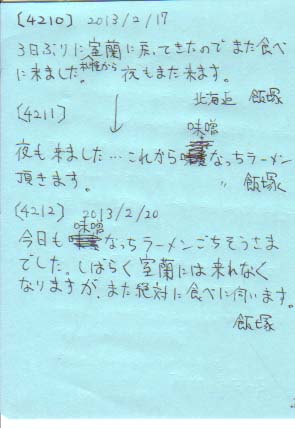 〔4210〕 2013/2/17
3日ぶりに室蘭に戻ってきたので また食べ
に来ました。 夜もまた来ます。
北海道 飯塚
〔4211〕
味噌
夜も来ました… これから なっちラーメン
頂きます。 〃 飯塚
〔4212〕 2013/2/20
味噌
今日も なっちラーメンごちそうさま
でした。しばらく室蘭には来れなく
なりますが、また絶対に食べに伺います。
飯塚